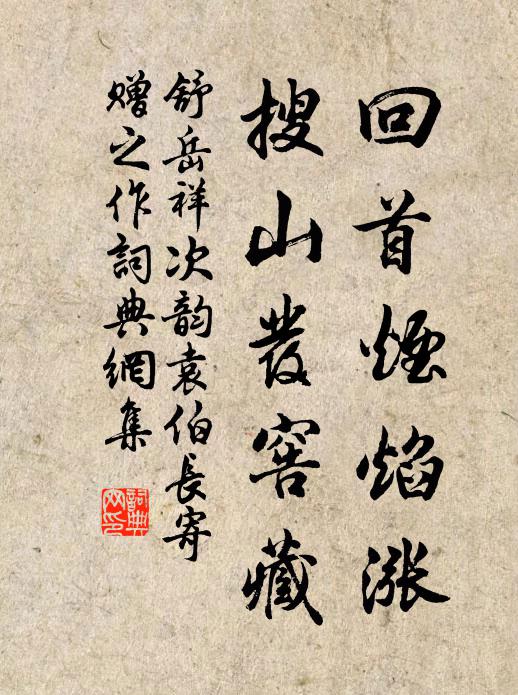 回首煙焰漲
搜山發窖藏
舒岳祥次韵袁伯長寄
贈之作詞典網集
詞典
网印